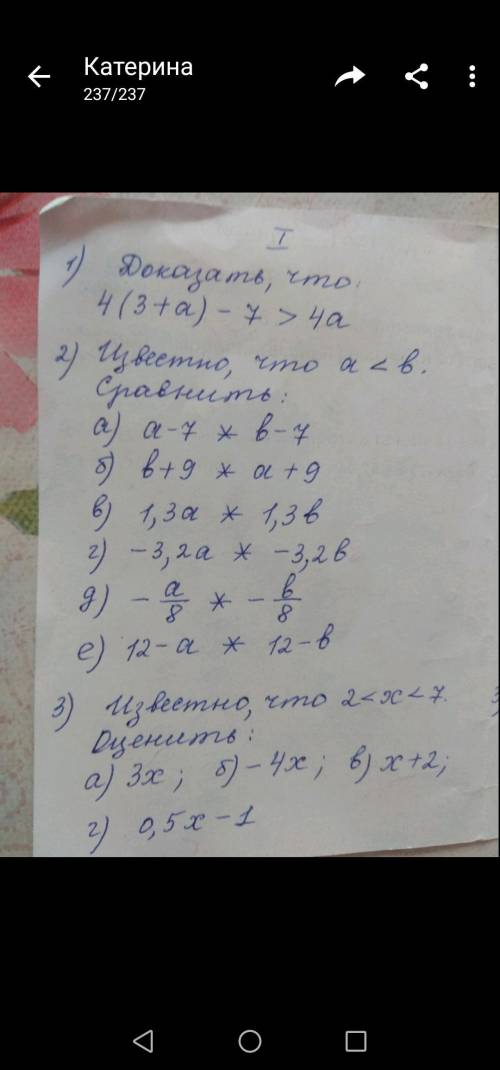 Катерина
237/237
I
1) Доказать, что:
4(3+а) - 7 > 4а
2) Известно, что а < в.
Сравнить:
а) а-7 * в-7
б) в+9 * а+9
в) 1,3а * 1,3в
г) -3,2а * -3,2в
д) - а/8 * - в/8
е) 12-а * 12-в
3) Известно, что 2<x<7.
Оценить:
а) 3x; б) -4x; в) x+2;
г) 0,5x-1